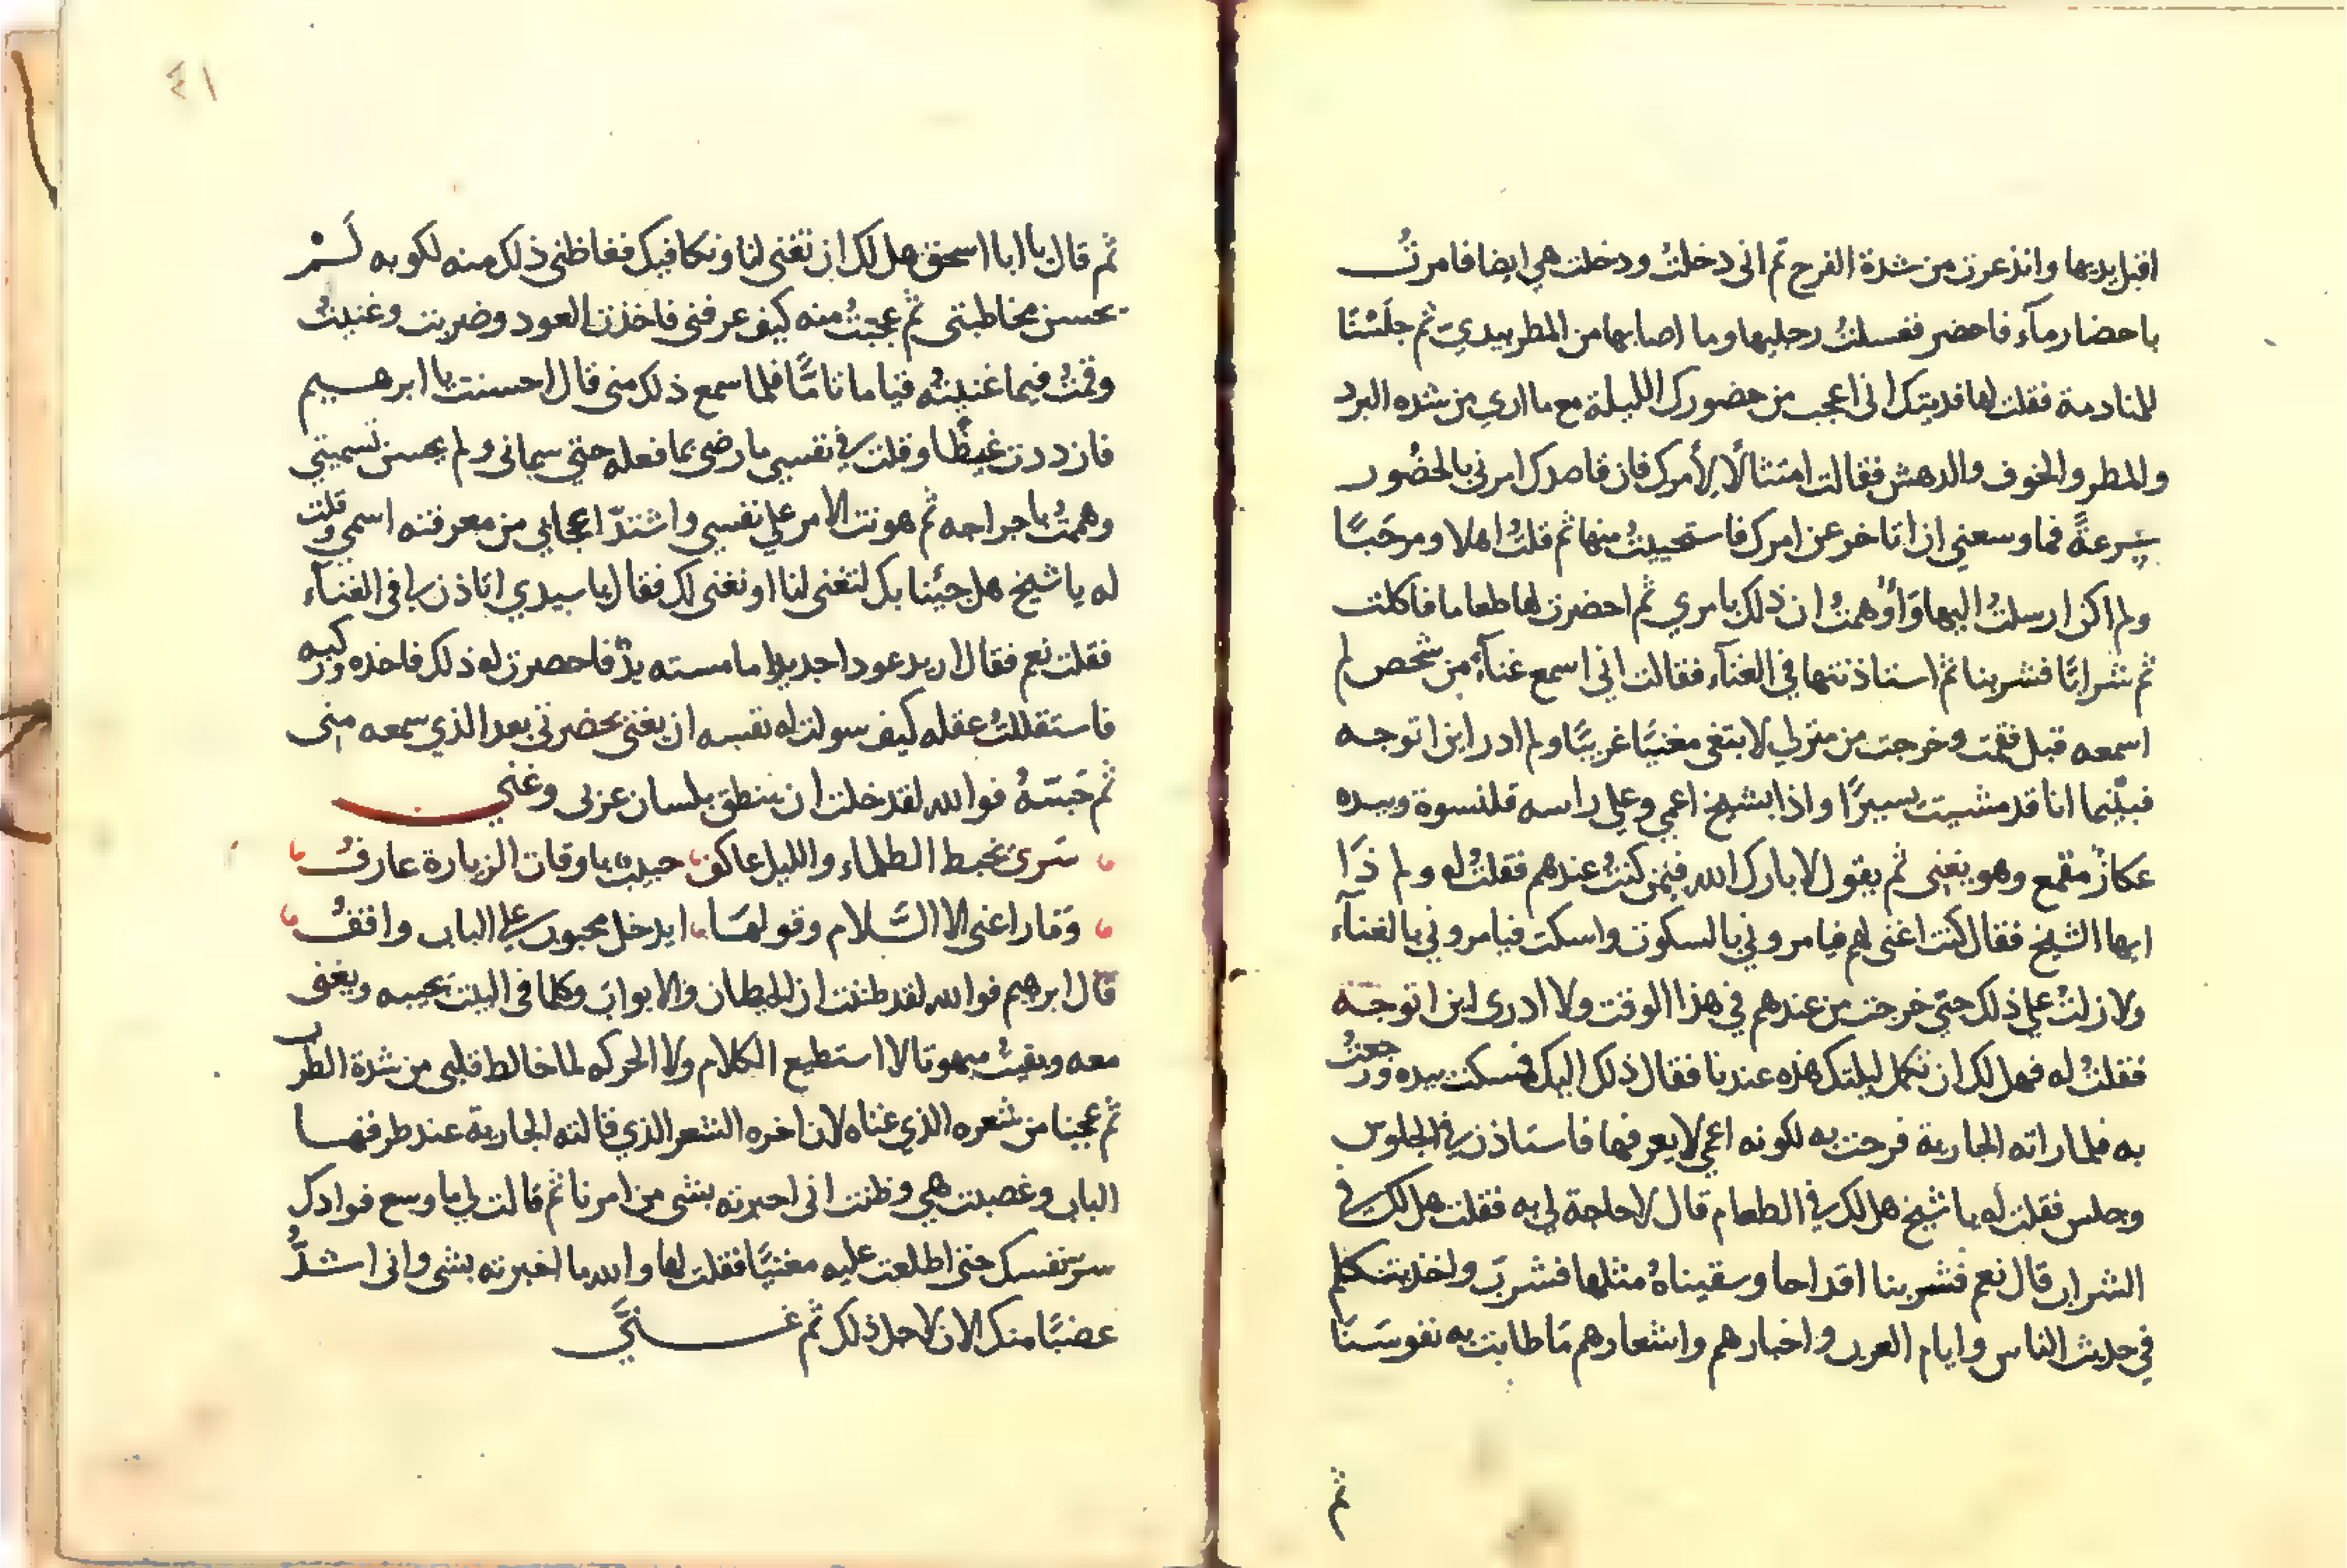 اقبل يديها وانذعرت من شدة الفرح ثم انى دخلتُ ودخلت هي ايضا فامرتُ
باحضار مآء فاحضر فغسلتُ رجليها وما اصابها من المطر بيدي ثم جلسْنَا
للمنادمة فقلت لها فديتك انى اعجب من حضورك الليلة مع ما اري من شده البرد
والمطر والخوف والدهش فقالت امتثالًا لأمرك فان قاصدك امرني بالحضُور
سرعةً فما وسعني ان اتاخر عن امرك فاستحييتُ منها ثم قلتُ اهلا ومرحَبًا
ولم اكن ارسلتُ اليها وَاوُهمتُ ان ذلك بامري ثم احضرت لها طعاما فاكلت
ثم شرابًا فشربنا ثم استاذنتها في الغنآء فقالت اني اسمع غنآءً من شخص لم
اسمعه قبل فقمت وخرجت من منزلي لابتغى مغنيًا غريبًا ولم ادر اين اتوجه
فبيْنما انا قد مشيت يسيرًا واذا بشيخ اعمي وعلي راسه قلنسوة وبيده
عكازٌ مقمع وهو يغنى ثم يقول لا بارك الله فيمن كنتُ عندهم فقلتُ له ولم ذَا
ايها الشيخ فقال كنت اغنى لهم فيامروني بالسكوت واسكت فيامروني بالغنآء
ولازلتُ علي ذلك حتي خرجت من عندهم في هذا الوقت ولا ادرى اين اتوجّه
فقلتُ له فهل لك ان تكمل ليلتك هذه عندنا فقال ذلك اليك فمسكت بيده ورجعتُ
به فلما راته الجارية فرحت به لكونه اعمي لا يعرفها فاستاذن في الجلوس
وجلس فقلت له يا شيخ هل لك في الطعام قال لا حاجة لي به فقلت هل لك في
الشراب قال نعم فشربنا اقداحا وسقيناهُ مثلها فشربَ واخذ يتكلم
في حديث الناس وايام العرب واخبارهم واشعارهم مَا طابت به نفوسنَا
ثم
٤١
ثم قال يا ابا اسحق هل لك ان تغنى لنا ونكافيك فغاظنى ذلك منه لكونه لَمْ
يحسن مخاطبتى ثم عجبتُ منه كيف عرفنى فاخذت العود وضربت وغنيتُ
وقمتُ فيما غنيتُه قياما تامًّا فلما سمع ذلك منى قال احسنت يا ابرهيم
فازددت غيظًا وقلت في نفسي ما رضى بما فعله حتي سمانى ولم يحسن تسميتي
وهممتُ باخراجه ثم هونت الامر علي نفسي واشتدّ اعجابي من معرفته اسمي وقلت
له يا شيخ هل جئنا بك لتغنى لنا او نغنى لك فقال يا سيدي اتاذن لي فى الغنآء
فقلت نعم فقال اريد عودا جديدا ما مسته يدٌ فاحضرت له ذلك فاخذه وركبه
فاستقللتُ عقله كيف سولت له نفسه ان يغنى بحضرتي بعد الذي سمعه منى
ثم جَسّهُ فوالله لقد خلت ان ينطق بلسان عربى وغني
سَرى يخبط الظلماء والليل عاكف حبيب باوقات الزيارة عارفُ
وَما راعنى الا السَّلام وقولهَا ايدخل محبوب علي الباب واقفُ
قال ابرهيم فوالله لقد ظننت ان الحيطان والابواب وكلما فى البيت يجيبه ويغنى
معه وبقيتُ مبهوتا لا استطيع الكلام ولا الحركه لما خالط قلبى من شدة الطرب
ثم عجبنا من شعره الذي غناه لان اخره الشعر الذي قالته الجارية عند طرقها
الباب وغضبت هي وظنت انى اخبرته بشى من امرنا ثم قالت لي ما وسع فوادك
سرّ نفسك حتى اطلعت عليه مغنيًا فقلت لها والله ما اخبرته بشى وانى اشدُّ
عضبًا منك الان لاجل ذلك ثم غنَّي